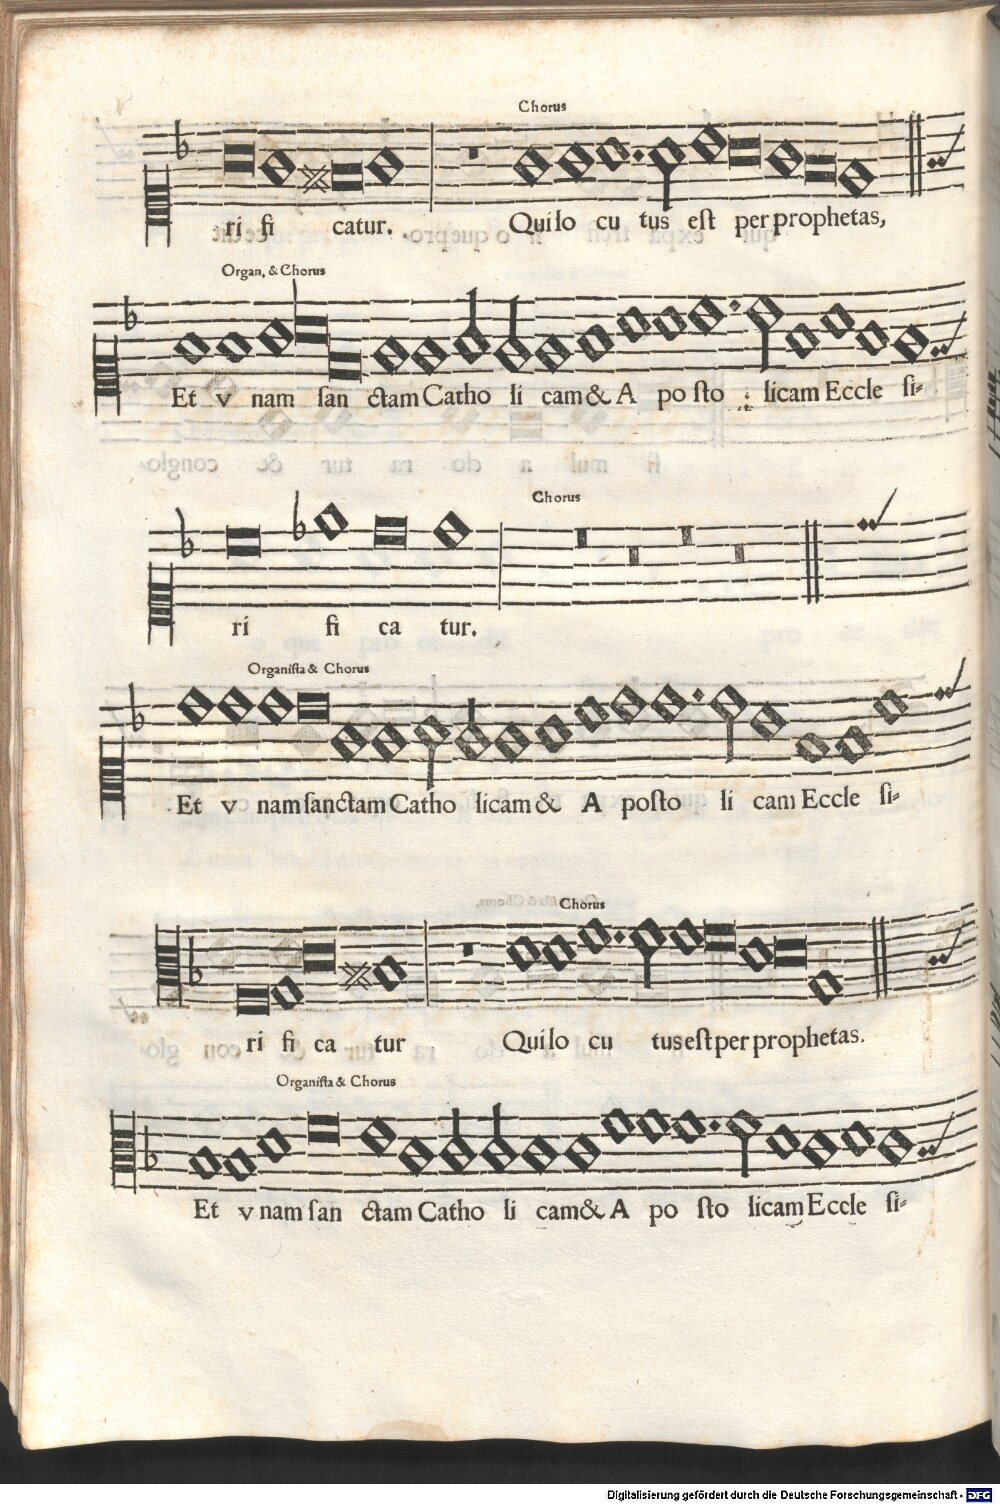 Chorus
ri fi catur. Qui lo cu tus eſt per prophetas,
Organ. & Chorus
Et v nam ſan ctam Catho li cam & A po ſto licam Eccle ſi-
Chorus
ri fi ca tur.
Organiſta & Chorus
Et v nam ſanctam Catho licam & A poſto li cam Eccle ſi-
Chorus
ri fi ca tur Qui lo cu tus eſt per prophetas.
Organiſta & Chorus
Et v nam ſan ctam Catho li cam & A po ſto licam Eccle ſi-
Digitalisierung gefördert durch die Deutsche Forschungsgemeinschaft - DFG